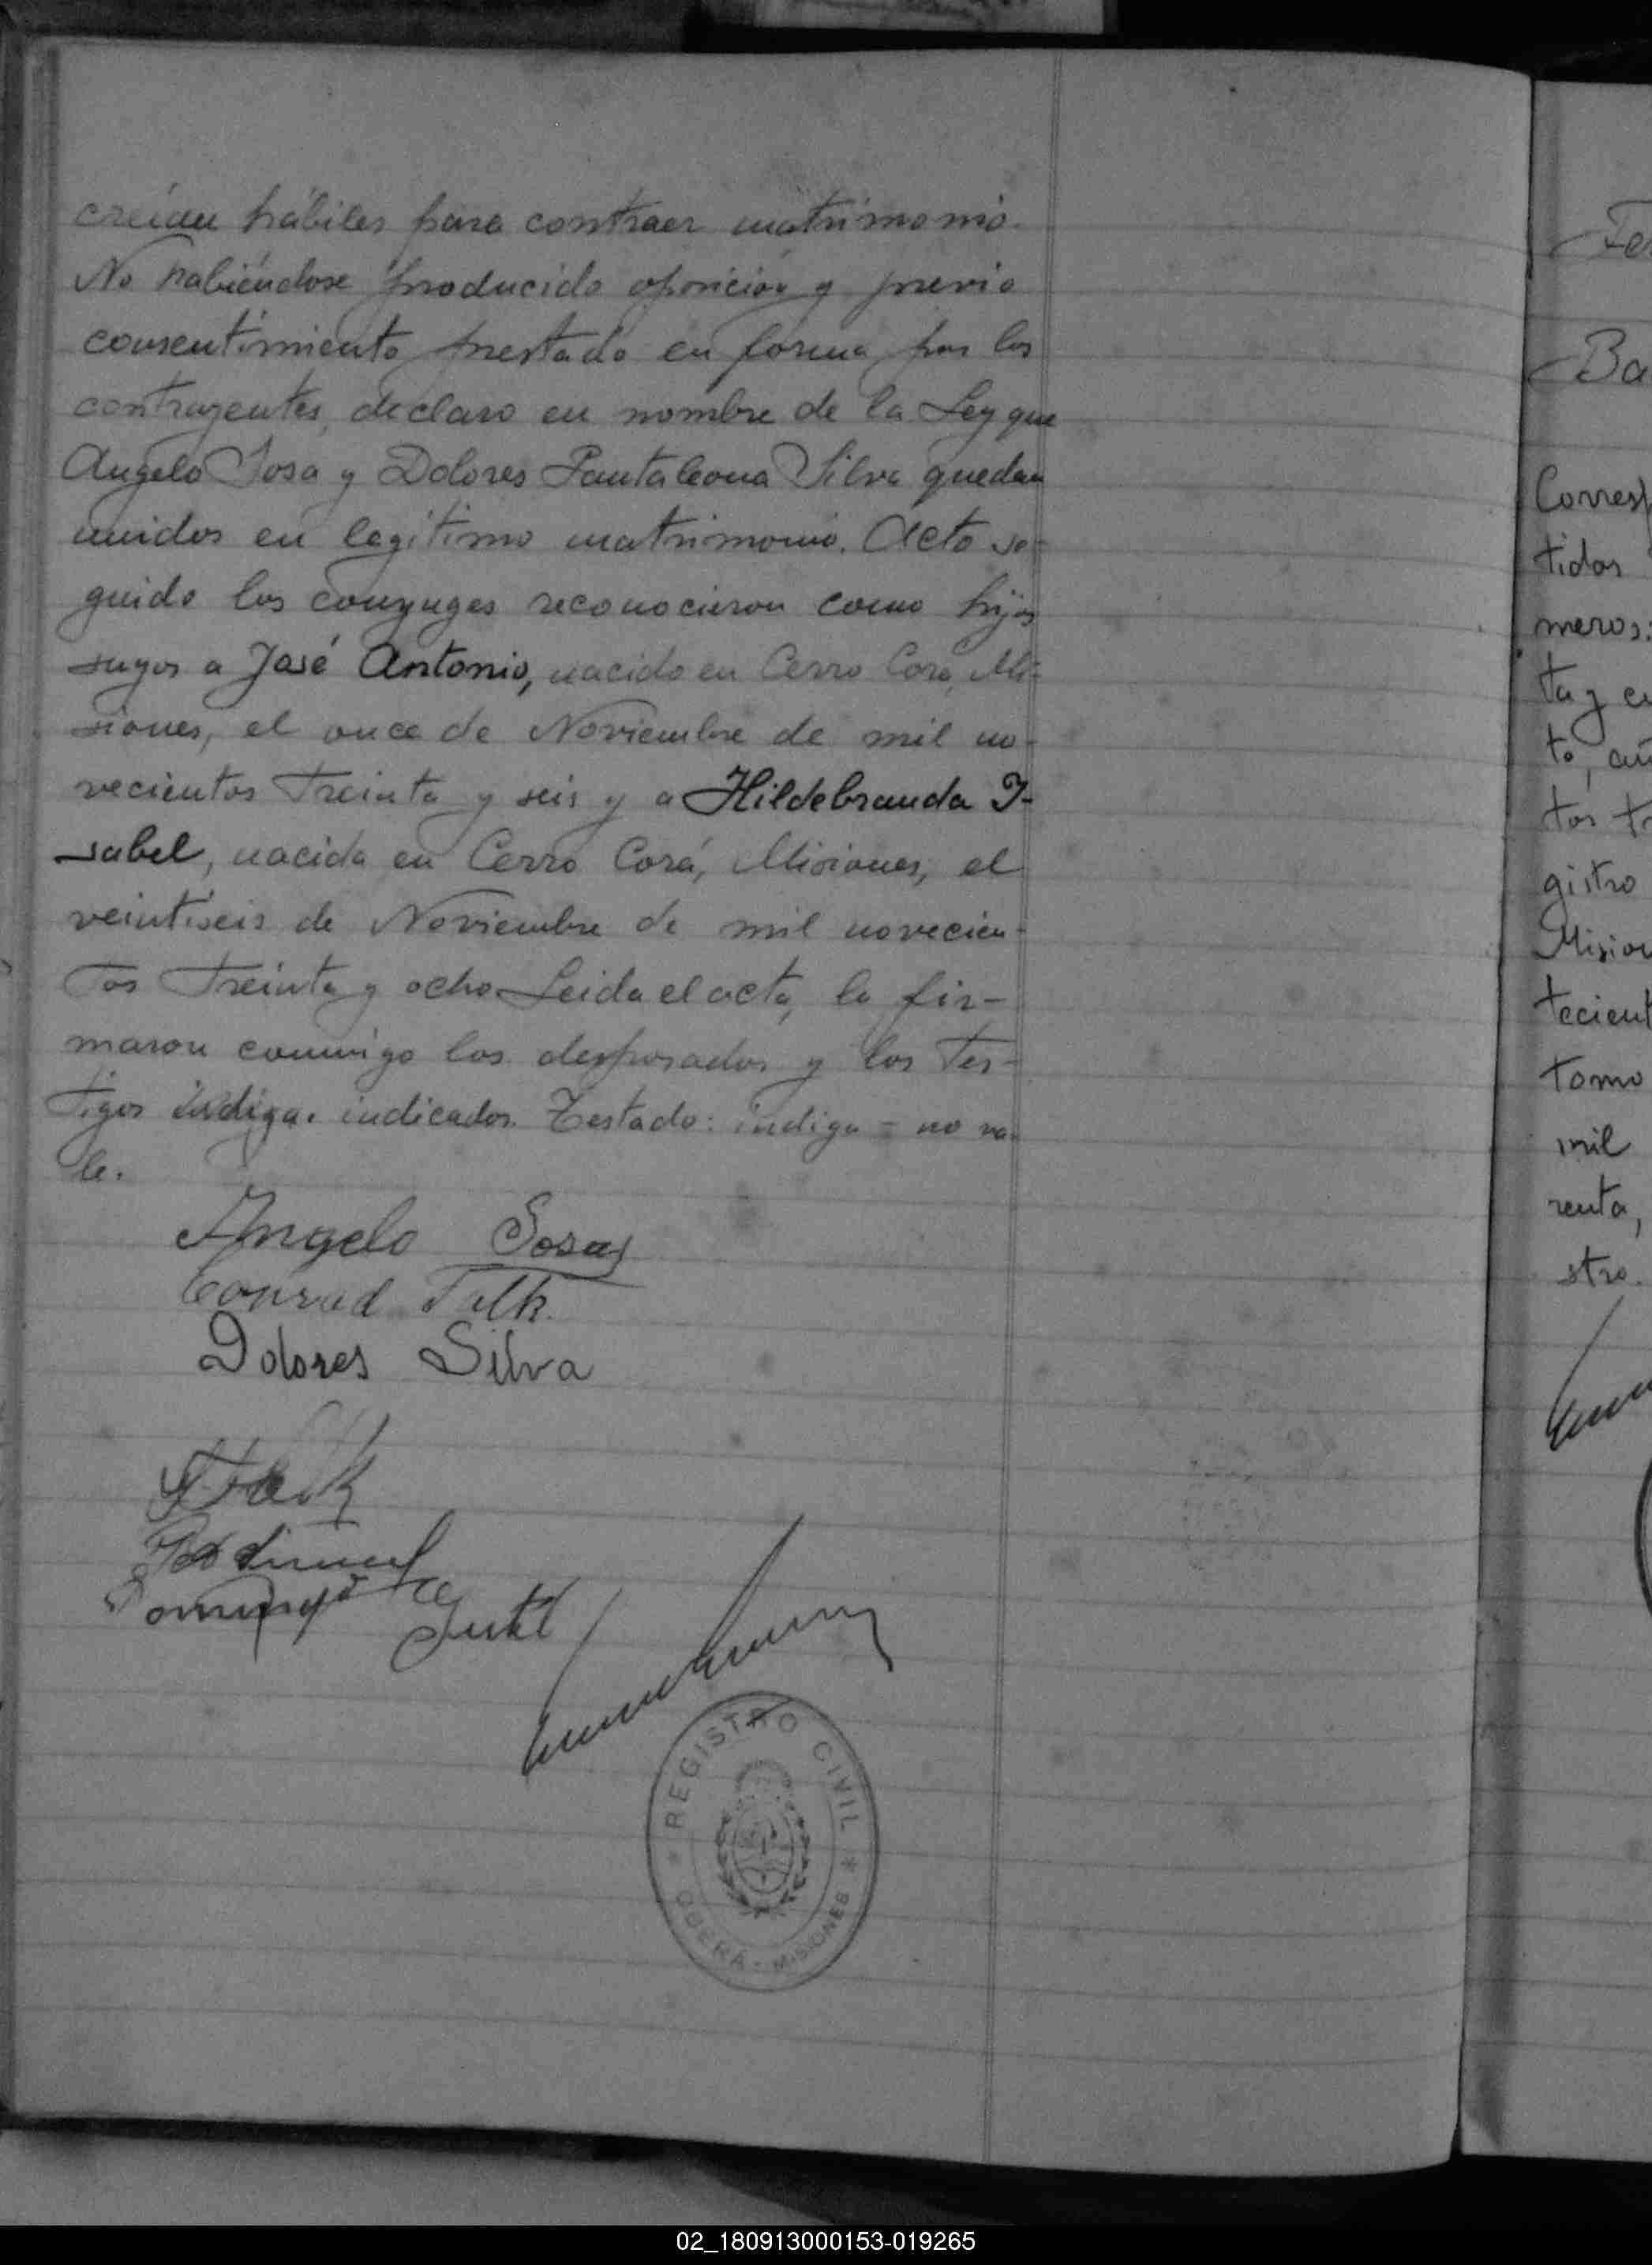 creían hábiles para contraer matrimonio.
No habiéndose producido oposición y previo
consentimiento prestado en forma por los
contrayentes, declaro en nombre de la Ley que
Angelo Sosa y Dolores Pantaleona Silva quedan
unidos en legítimo matrimonio. Acto se-
guido los conyuges reconocieron como hijos
suyos a José Antonio, nacido en Cerro Corá, Mi-
siones, el once de Noviembre de mil no-
vecientos treinta y seis y a Hildebranda I-
sabel, nacida en Cerro Corá, Misiones, el
veintiseis de Noviembre de mil novecien-
tos treinta y ocho. Leida el acta, la fir-
maron conmigo los desposados y los tes-
tigos indiga. indicados. Testado: indiga = no va-
le.
Angelo Sosa
Conrad
Dolores Silva
REGISTRO CIVIL
OBERÁ - MISIONES
Fe
Ba
Corresp
tidos
meros:
ta y cu
to, añ
tos tr
gistro
Mision
tecient
tomo
mil
renta,
stro.
02_180913000153-019265